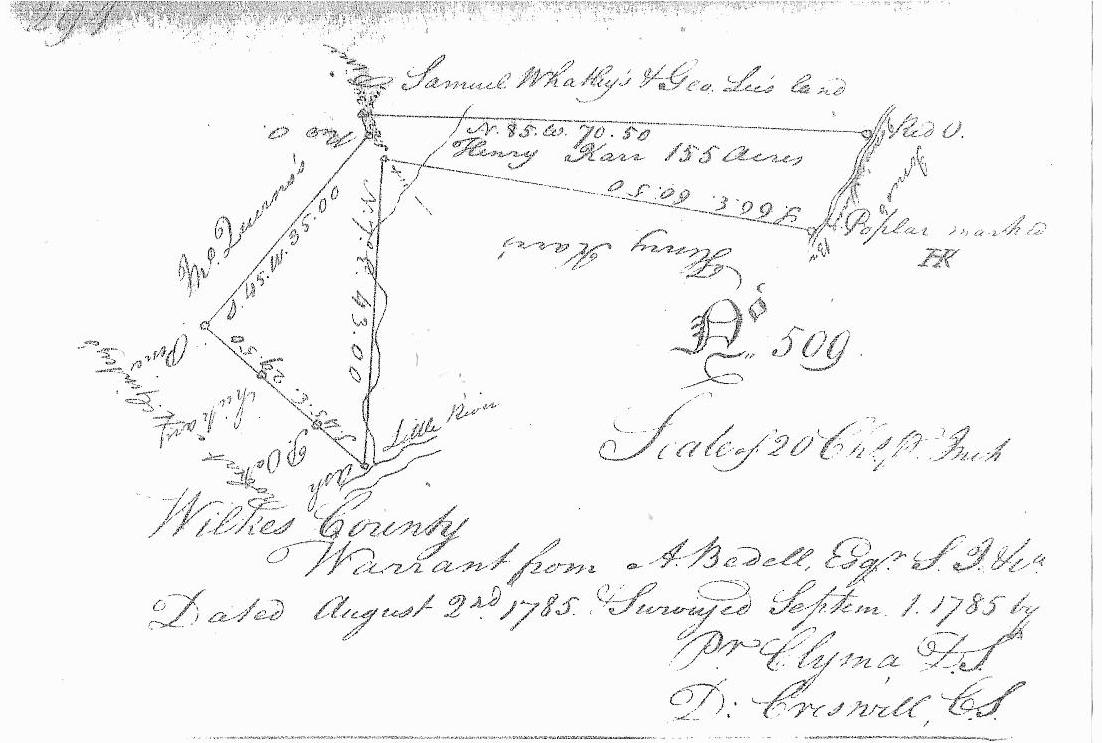 294
Samuel Whatley's & Geo. Lee's land
N. 85. W. 70.50
Red O.
Henry Karr 155 Acres
S. 66. E. 60.50
Poplar marked
HK
Henry Karr's
Red O.
S. 45. W. 35.00
N. 7. E. 43.00
Pine
S. 45. E. 29.50
P. Oak
Ash
Little River
No. 509
Scale of 20 Chs. Pr. Inch
Wilkes County
Warrant from A. Bedell, Esqr. S. J. &ca.
Dated August 2nd. 1785. & Surveyed Septem. 1. 1785 by
Pr Clyma, D.S.
D: Creswell, C.S.